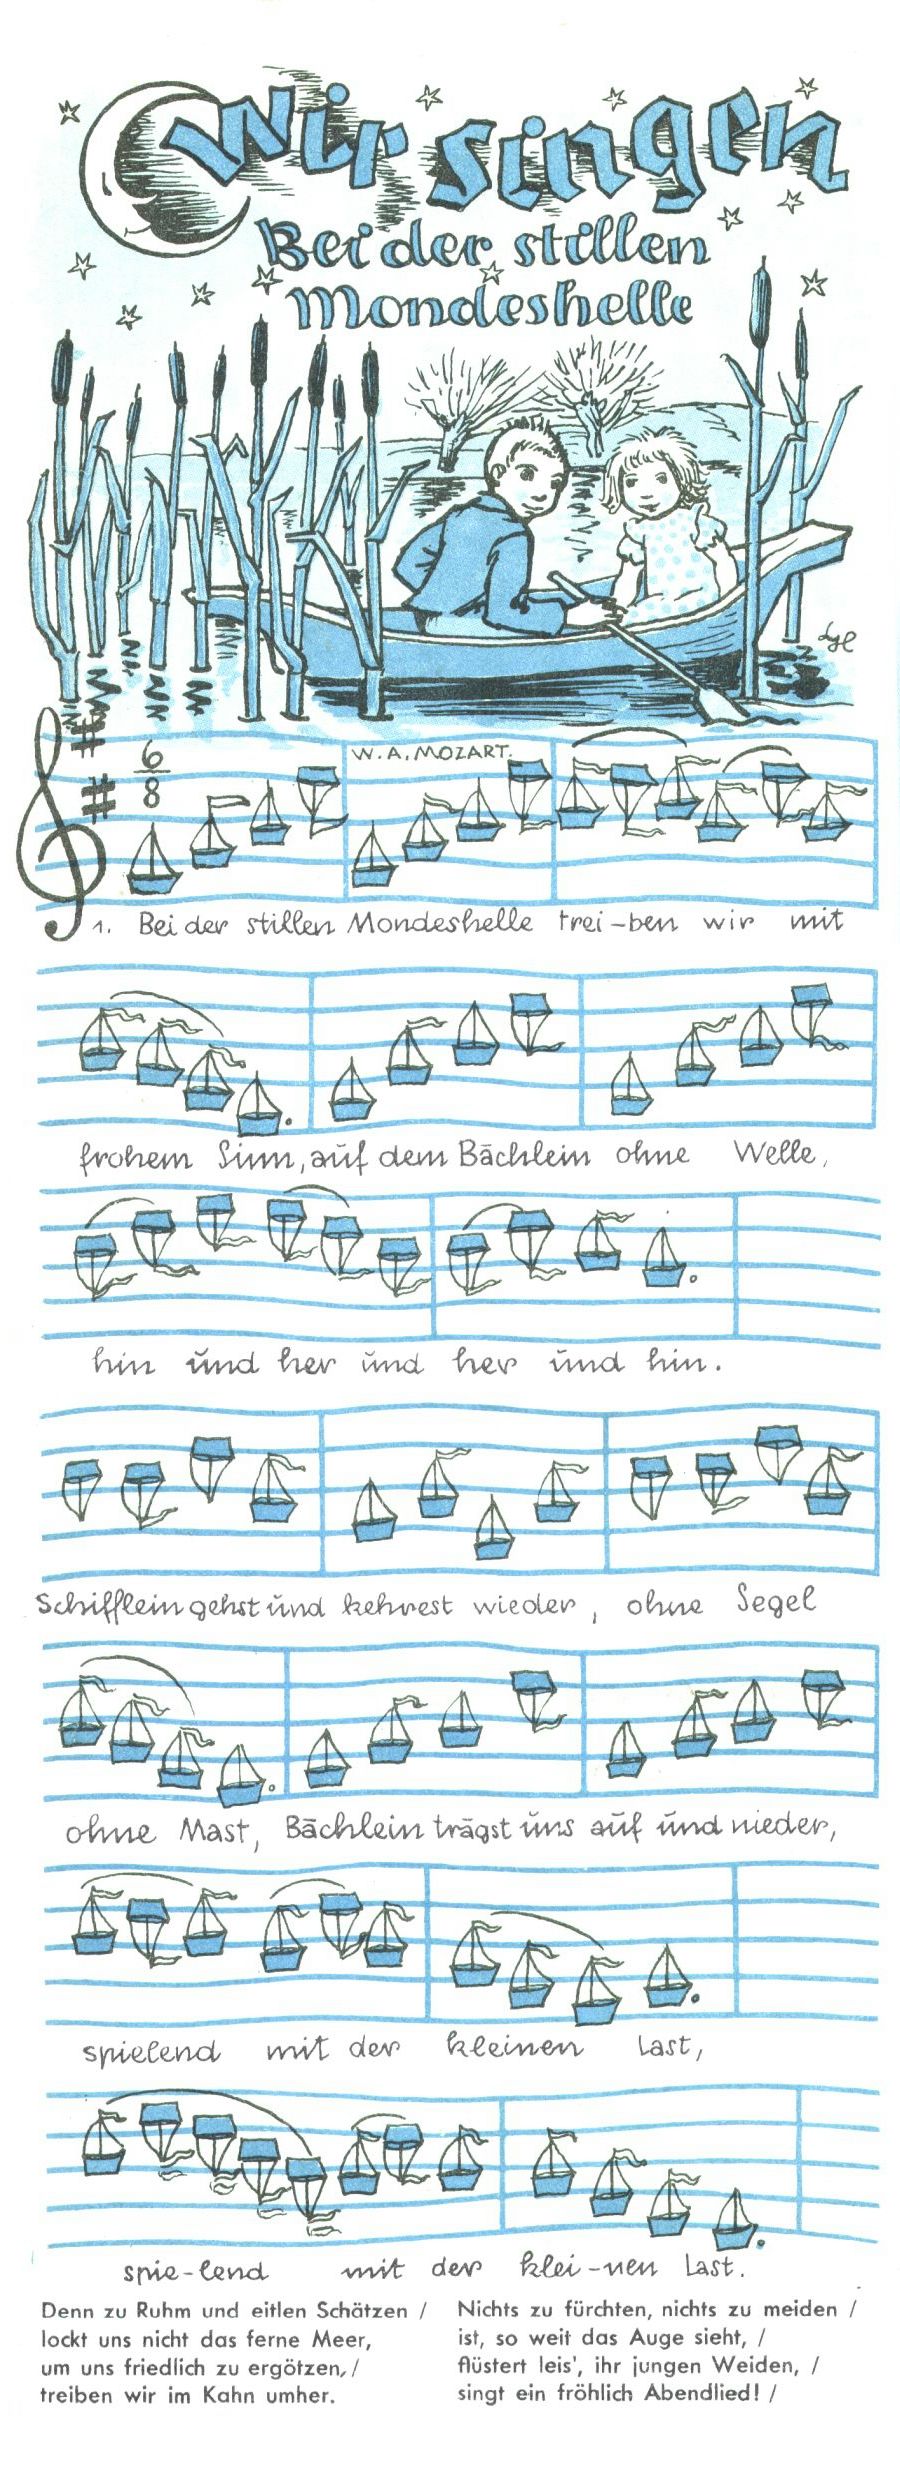 Wir singen
Bei der stillen
Mondeshelle
LyH
6
8
W. A. MOZART.
1. Bei der stillen Mondeshelle trei-ben wir mit
frohem Sinn, auf dem Bächlein ohne Welle,
hin und her und her und hin.
Schifflein gehst und kehrest wieder, ohne Segel
ohne Mast, Bächlein trägst uns auf und nieder,
spielend mit der kleinen Last,
spie-lend mit der klei-nen Last.
Denn zu Ruhm und eitlen Schätzen /
lockt uns nicht das ferne Meer,
um uns friedlich zu ergötzen, /
treiben wir im Kahn umher.
Nichts zu fürchten, nichts zu meiden /
ist, so weit das Auge sieht, /
flüstert leis', ihr jungen Weiden, /
singt ein fröhlich Abendlied! /